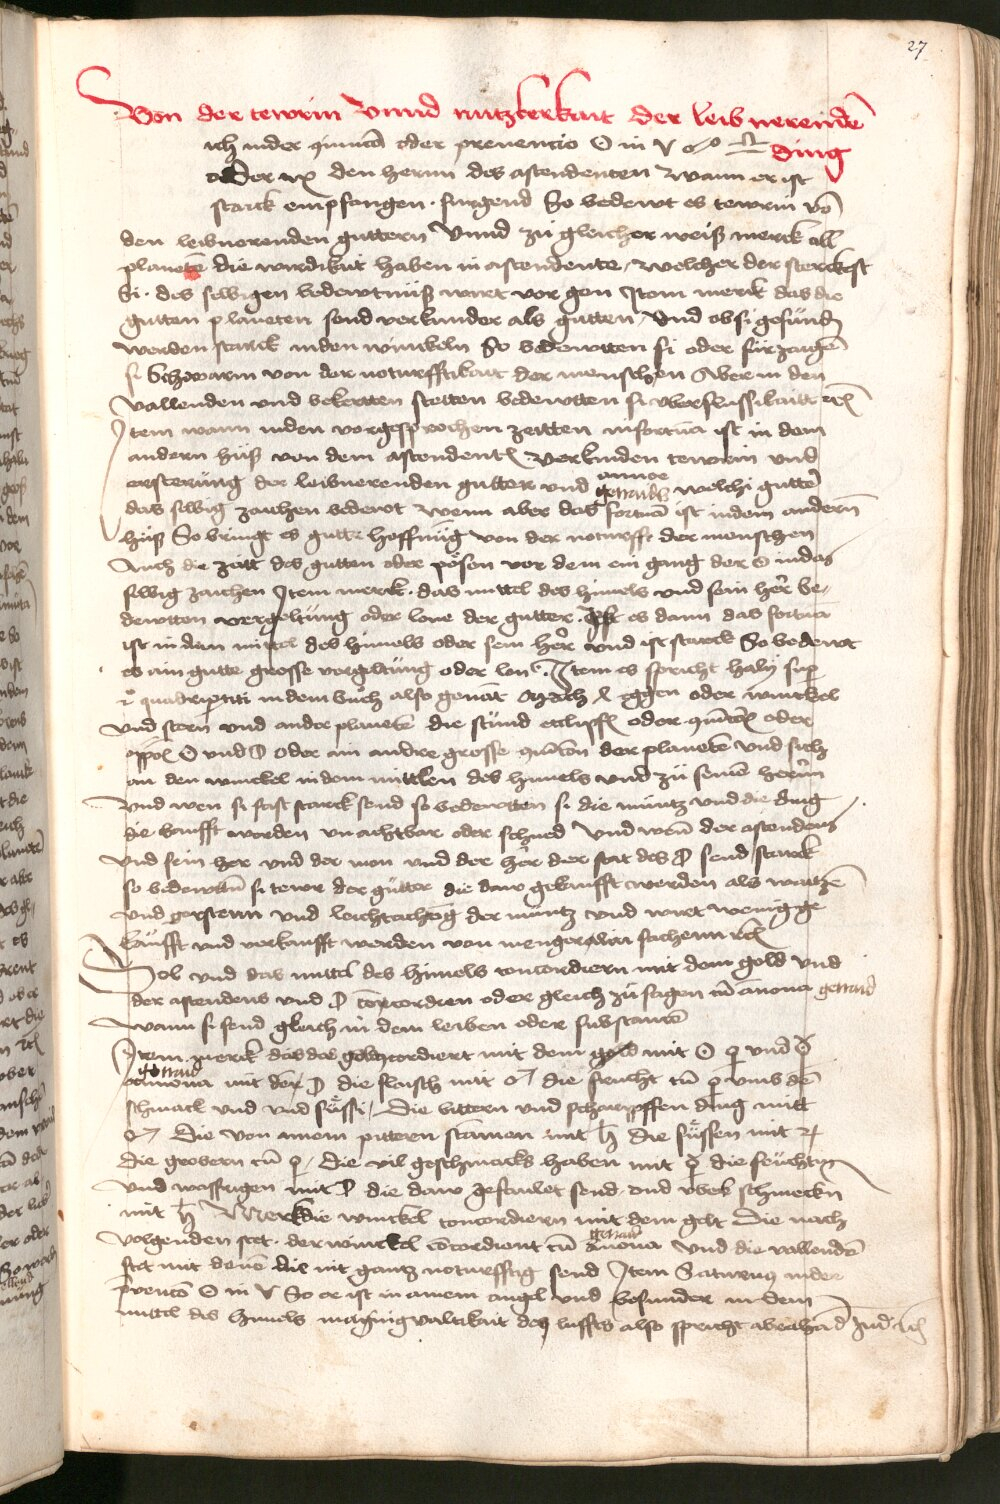 27
Von der tewrin Vnnd nutzberkait der leib nerendē
ding
ich inder oder preuencio ☉ in ♈ ☍ ♎
oder den herrn des astendenten wann er ist
starck empfangen · surgend So bedewt es tewrin vō
den leibnerenden guttern Vnnd zu gleicher weiß merck all
planetē die wirdikait haben in astendente / welcher der sterckest
si · des selbigen bedewtnuß wirt vor gen Item merck das die
gutten planeten send verkunder als gutten / Vnd ob si gefund
werden starck inden winckeln So bedewtten si oder für zaigē
si von der noturfftikait der menschen Aber in den
vallenden vnd stetten bedewtten si vberflussikait
Item wann inden vorgesprochen zeitten infortūa ist in dem
andern huß von dem astendent verkunden tewrin vnd
der leibnerenden gutter vnd annoe getraids welchi gutter
das selbig zaichen bedewt Wenn aber das fortuā ist indem andern
huß So bringt es gutte hoffnūg von der noturfft der menschen
Auch die zeitt des gutten oder pösen vor dem ein gang der ☉ indas
selbig zaichen Item merck · das mittel des himels vnd sein her be-
dewtten vergeltung oder lone der gutter · Ist es dann das fortūa
ist in dem mittel des himels oder sein her vnd ist starck So bedewt
es ain gutte grosse vergeltūg oder lon · Item es spricht haly sup
quadripertiti in dem buch also genāt Mach eggen oder winckel
vnd stern vnd ander planetē die stund ecclipss oder oder
☉ vnd ☽ oder ain andre grosse der planetē vnd sich
an den winckel in dem mittlen des himels vnd zu seinē herrin
Vnd wen si fast starck send so bedewtten si die müntz vnd die ding
die kaufft werden vn achtbar oder schned Vnd wen der astendens
vnd sein her vnd der mon vnd der her der stat des ☽ send starck
so bedewttn si tewr der gütter die daw gekaufft werden als waitzē
vnd gerstenn vnd leichtachog der müntz vnd wirt wenig ge
kaufft vnd verkaufft werden von mengerlai sachenn
Sol vnd das mittel des himels concordiern mit dem gold vnd
der astendens vnd ☽ concordien oder gleich zu sagen cū anona getraid
Wann si send gleich in dem leiben oder substantē
Item merck das das concordiert mit dem gold mit ☉ ♀ vnd ☿
getraid
annona mit der ☽ die flaisch mit ♂ die frucht cū ♀ vmb dē
schmack vnd vnd süssi / Die bittern vnd scharpffen ding mitt
♂ Die von ainem pittern stamen mit ♄ die süssen mit ♃
die gröbern cū ♀ / die vil geschmacks haben mit ☿ die feuchtin
vnd wassrigen mit ☽ die daw gefaulet send · vnd vbel schmeckn
mit ♄ Merck die winckel concordiern mit dem gelt Die nach
volgenden stet · der winckel concordient cū annona getraid Vnd die vallendē
stet mit denē die nit gantz noturfftig send Item Saturnus inder
preuenco ☉ in ♈ So er ist in ainem angel vnd besunder in dem
mittel des himels manigualtikait des luffts also spricht